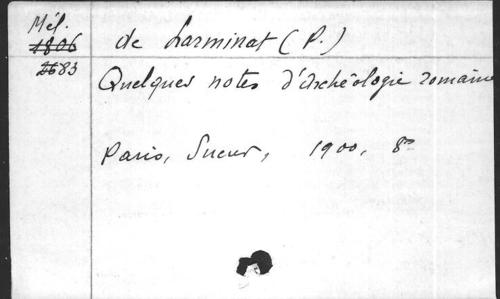 Mél.
1806 de Larminat (P.)
2683 Quelques notes d'archéologie romaine
Paris, Sueur, 1900, 8°